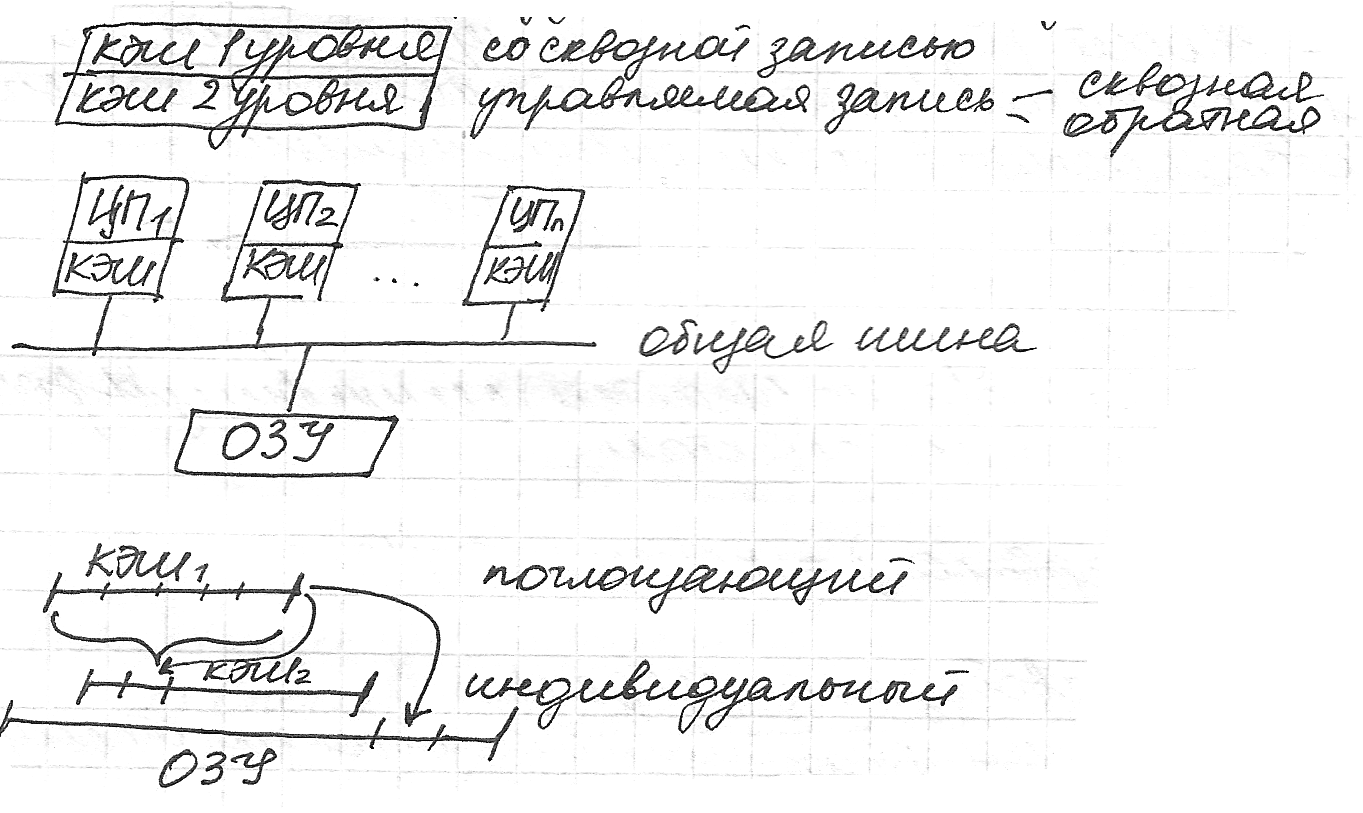 кэш 1 уровня со сквозной записью
кэш 2 уровня управляемая запись — сквозная
обратная
ЦП1 ЦП2 ЦПn
КЭШ КЭШ ... КЭШ
общая шина
ОЗУ
кэш1 поглощающий
кэш2 индивидуальный
ОЗУ